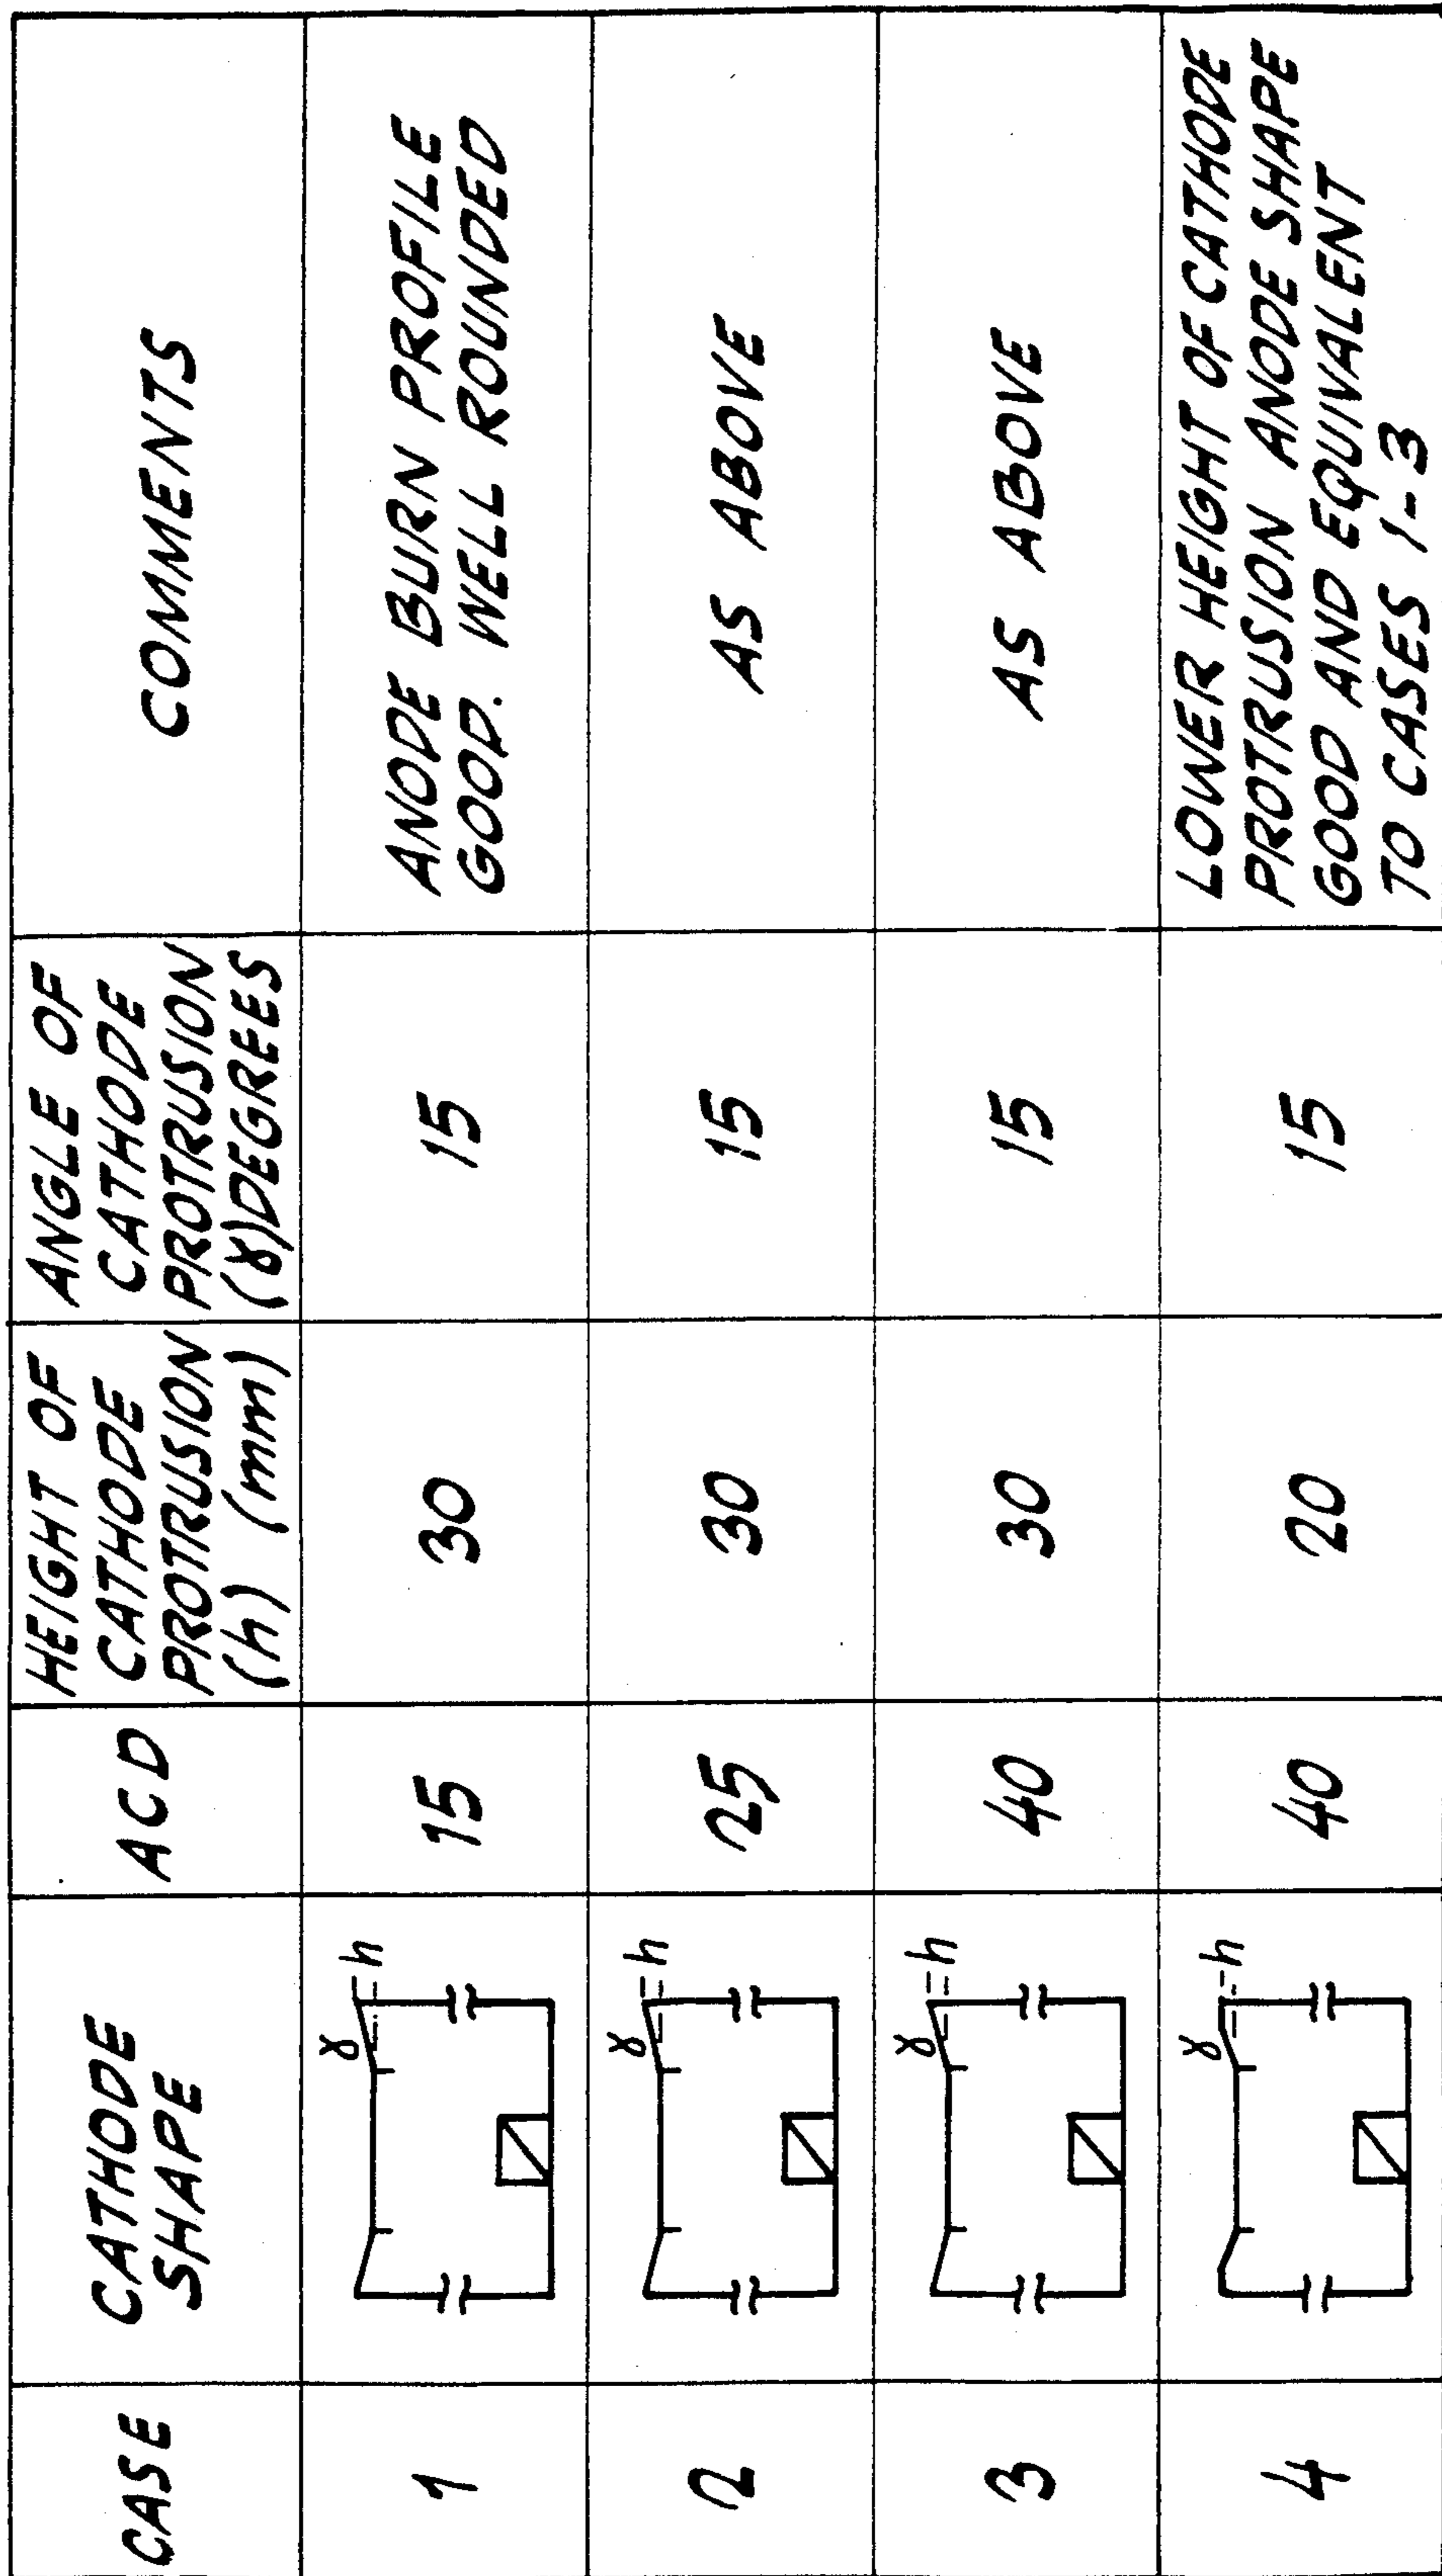 CASE
CATHODE
SHAPE
ACD
HEIGHT OF
CATHODE
PROTRUSION
(h) (mm)
ANGLE OF
CATHODE
PROTRUSION
(γ)DEGREES
COMMENTS
1
γ
h
15
30
15
ANODE BURN PROFILE
GOOD. WELL ROUNDED
2
γ
h
25
30
15
AS ABOVE
3
γ
h
40
30
15
AS ABOVE
4
γ
h
40
20
15
LOWER HEIGHT OF CATHODE
PROTRUSION ANODE SHAPE
GOOD AND EQUIVALENT
TO CASES 1-3